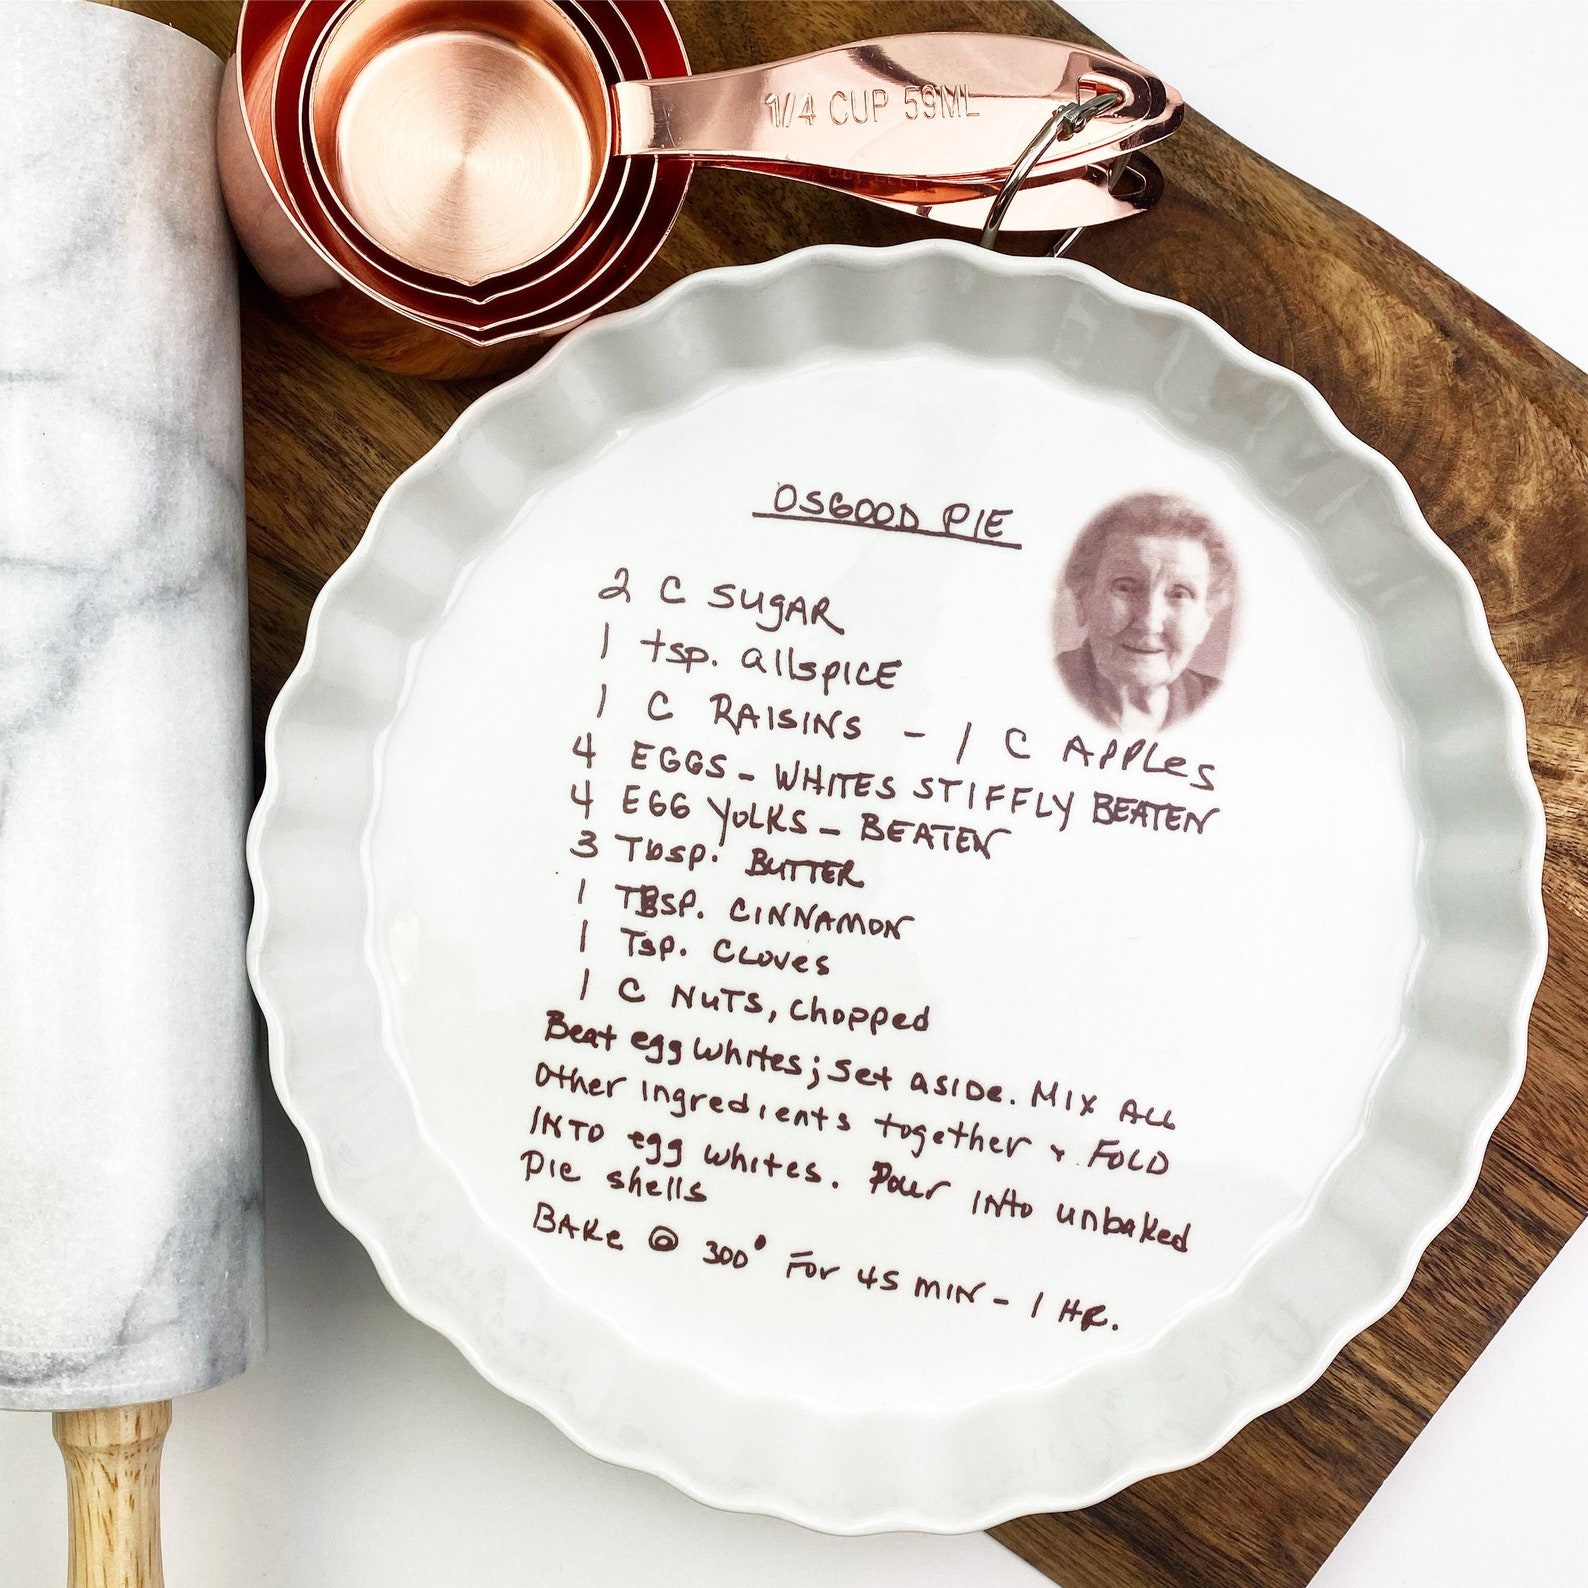 1/4 CUP 59ML
OSGOOD PIE
2 C SUgAR
1 tsp. allspICE
1 C RAISINS - 1 C APPLes
4 EGGS - WHITES STIFFLY BEATEN
4 EGG YOLKS - BEATEN
3 Tbsp. BUTTER
1 TBSP. CINNAMON
1 Tsp. CLOVES
1 C NUTS, chopped
Beat egg whites; set aside. MIX ALL
other ingredients together + FOLD
INTO egg whites. Pour into unbaked
pie shells
BAKE @ 300° For 45 MIN - 1 HR.